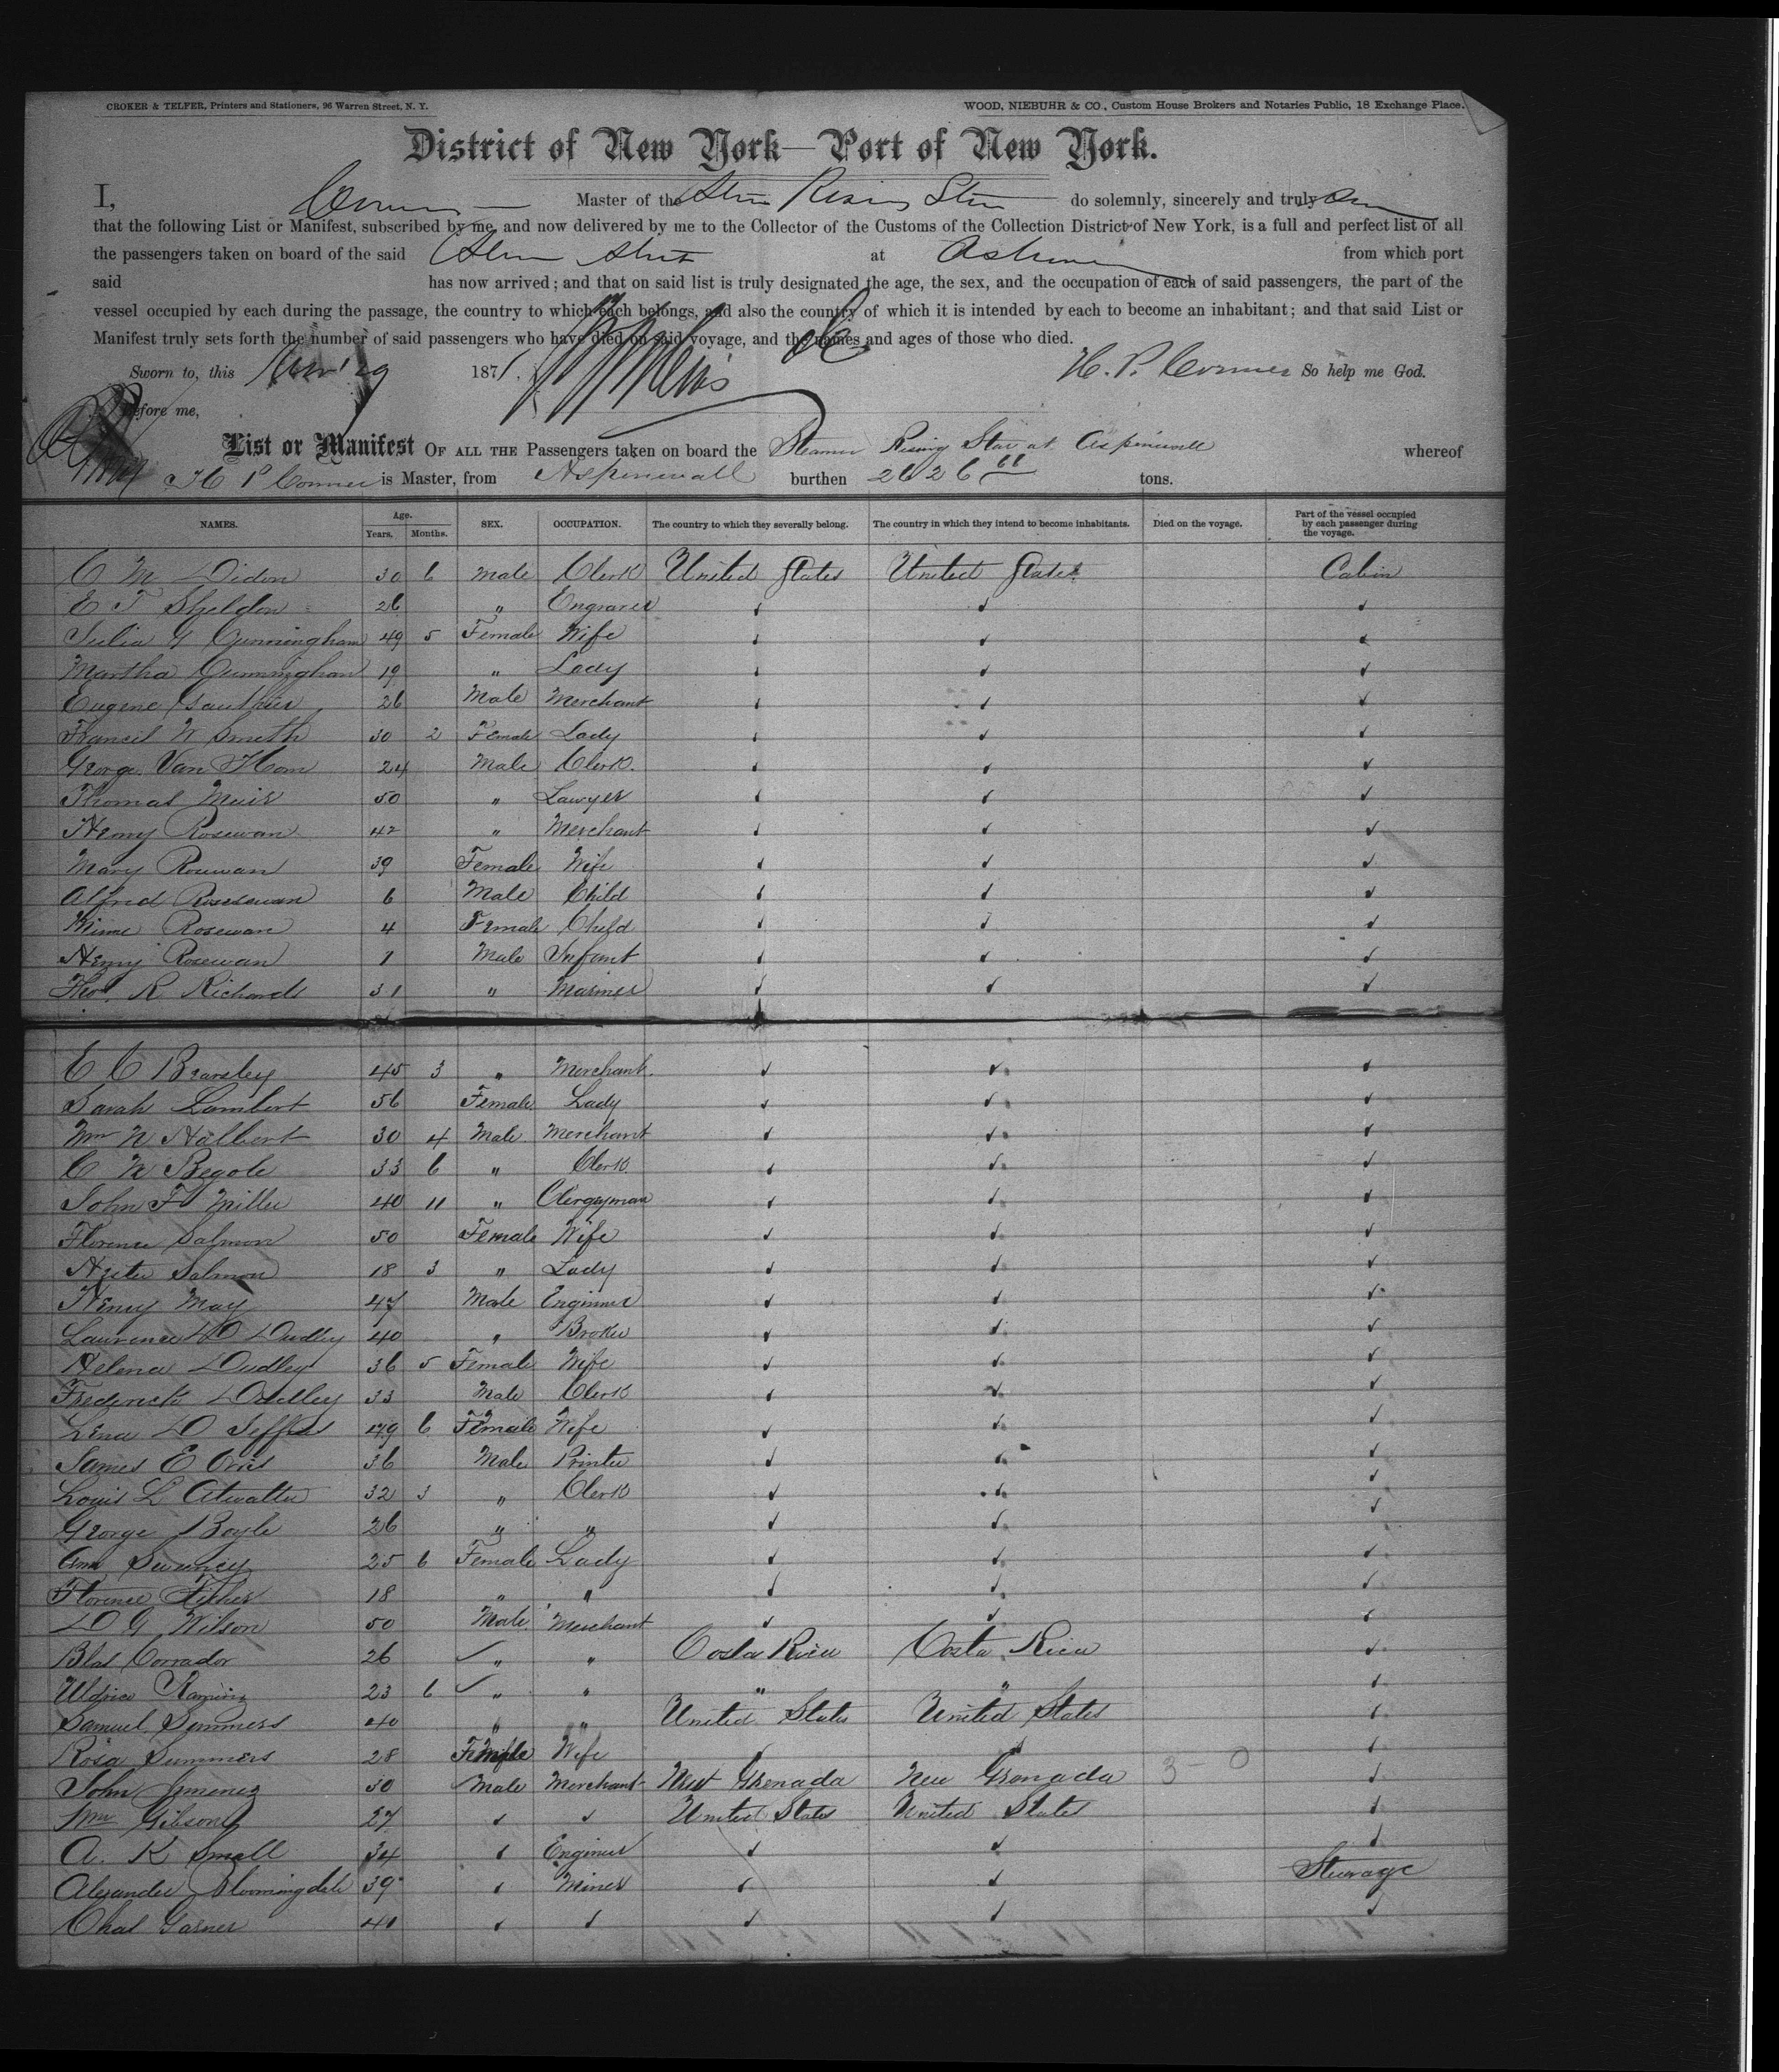 CROKER & TELFER, Printers and Stationers, 96 Warren Street, N. Y. WOOD, NIEBUHR & CO., Custom House Brokers and Notaries Public, 18 Exchange Place.
District of New York—Port of New York.
I, Connor Master of the Rising Star do solemnly, sincerely and truly
that the following List or Manifest, subscribed by me, and now delivered by me to the Collector of the Customs of the Collection District of New York, is a full and perfect list of all
the passengers taken on board of the said at from which port
said has now arrived; and that on said list is truly designated the age, the sex, and the occupation of each of said passengers, the part of the
vessel occupied by each during the passage, the country to which each belongs, and also the country of which it is intended by each to become an inhabitant; and that said List or
Manifest truly sets forth the number of said passengers who have died on said voyage, and the names and ages of those who died.
Sworn to, this 29 1871. H. P. Connor So help me God.
Before me,
List or Manifest OF ALL THE Passengers taken on board the Steamer Rising Star at Aspinwall whereof
H P Connor is Master, from Aspinwall burthen 2626 tons.
NAMES. Age. Years. Months. SEX. OCCUPATION. The country to which they severally belong. The country in which they intend to become inhabitants. Died on the voyage. Part of the vessel occupied by each passenger during the voyage.
C M 30 6 Male Clerk United States United States Cabin
E T Sheldon 26 " Engraver ✓ ✓ ✓
Julia G Cunningham 49 5 Female Wife ✓ ✓ ✓
Martha Cunningham 19 " Lady ✓ ✓ ✓
Eugene Gauthier 26 Male Merchant ✓ ✓ ✓
Francis W Smith 30 2 Female Lady ✓ ✓ ✓
George Van Horn 24 Male Clerk ✓ ✓ ✓
Thomas Muir 50 " Lawyer ✓ ✓ ✓
Henry Rosewan 42 " Merchant ✓ ✓ ✓
Mary Rosewan 39 Female Wife ✓ ✓ ✓
Alfred Rosewan 6 Male Child ✓ ✓ ✓
Rosewan 4 Female Child ✓ ✓ ✓
Henry Rosewan 1 Male Infant ✓ ✓ ✓
Thos. R Richards 31 " Mariner ✓ ✓ ✓
E C Brarsley 45 3 " Merchant ✓ ✓ ✓
Sarah Lambert 56 Female Lady ✓ ✓ ✓
Wm N Halbert 30 4 Male Merchant ✓ ✓ ✓
C N Begole 33 6 " Clerk ✓ ✓ ✓
John F Miller 40 11 " Clergyman ✓ ✓ ✓
Florence Salmon 50 Female Wife ✓ ✓ ✓
Salmon 18 3 " Lady ✓ ✓ ✓
Henry May 47 Male Engineer ✓ ✓ ✓
Laurence D Dudley 40 " Broker ✓ ✓ ✓
Helena Dudley 36 5 Female Wife ✓ ✓ ✓
Frederick Dudley 33 Male Clerk ✓ ✓ ✓
Lena D 49 6 Female Wife ✓ ✓ ✓
James E 36 Male Printer ✓ ✓ ✓
Louis L Atwalter 32 3 " Clerk ✓ ✓ ✓
George Boyle 26 " " ✓ ✓ ✓
Ann Sweeney 25 6 Female Lady ✓ ✓ ✓
Florence Fisher 18 " " ✓ ✓ ✓
D G Wilson 50 Male Merchant ✓ ✓ ✓
Blas Corrador 26 ✓ " " Costa Rica Costa Rica ✓
Ramirez 23 6 ✓ " " " " ✓
Samuel Summers 40 " " United States United States ✓
Rosa Summers 28 Female Wife ✓ ✓ ✓
John Jimenez 30 Male Merchant New Grenada New Grenada 3 0 ✓
Wm Gibson 27 ✓ ✓ United States United States ✓
A. K Small 34 ✓ Engineer ✓ ✓ ✓
Alexander Bloomingdale 39 ✓ Miner ✓ ✓ Steerage
Chas Garner 41 ✓ ✓ ✓ ✓ ✓